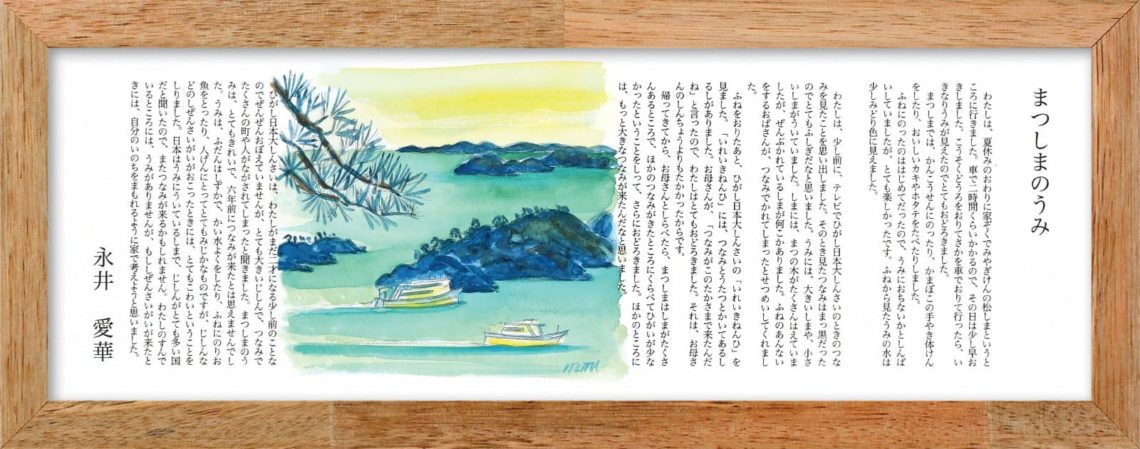 まつしまのうみ
わたしは、夏休みのおわりに家ぞくでみやぎけんの松しまというと
ころに行きました。車で二時間くらいかかるので、その日は少し早お
きしました。こうそくどうろをおりてさかを車でおりて行ったら、い
きなりうみが見えたのでとてもおどろきました。
まつしまでは、かんこうせんにのったり、かまぼこの手やき体けん
をしたり、おいしいカキやホタテをたべたりしました。
ふねにのったのははじめてだったので、うみにおちないかとしんぱ
いしていましたが、とても楽しかったです。ふねから見たうみの水は
少しみどり色に見えました。
わたしは、少し前に、テレビでひがし日本大しんさいのときのつな
みを見たことを思い出しました。そのとき見たつなみはまっ黒だった
のでとてもふしぎだなと思いました。うみには、大きいしまや、小さ
いしまがういていました。しまには、まつの木がたくさんはえていま
したが、ぜんぶかれているしまが何こかありました。ふねのあんない
をするおばさんが、つなみでかれてしまったとせつめいしてくれまし
た。
ふねをおりたあと、ひがし日本大しんさいの「いれいきねんひ」を
見ました。「いれいきねんひ」には、つなみとうたつとかいてあるし
るしがありました。お母さんが、「つなみがこのたかさまで来たんだ
ね」と言ったので、わたしはとてもおどろきました。それは、お母さ
んのしんちょうよりもたかかったからです。
帰ってきてから、お母さんとしらべたら、まつしまはしまがたくさ
んあるところで、ほかのつなみがきたところにくらべてひがいが少な
かったということをしって、さらにおどろきました。ほかのところに
は、もっと大きなつなみが来たんだなと思いました。
ひがし日本大しんさいは、わたしがまだ二才になる少し前のことな
のでぜんぜんおぼえていませんが、とても大きいじしんで、つなみで
たくさんの町や人がながされてしまったと聞きました。まつしまのう
みは、とてもきれいで、六年前につなみが来たとは思えませんでし
た。うみは、ふだんはしずかで、かい水よくをしたり、ふねにのりお
魚をとったり、人げんにとってとてもみじかなものですが、じしんな
どのしぜんさいがいがおこったときには、とてもこわいということを
しりました。日本はうみにういているしまで、じしんがとても多い国
だと聞いたので、またつなみが来るかもしれません。わたしのすんで
いるところには、うみがありませんが、もししぜんさいがいが来たと
きには、自分のいのちをまもれるように家で考えようと思いました。
永井 愛華